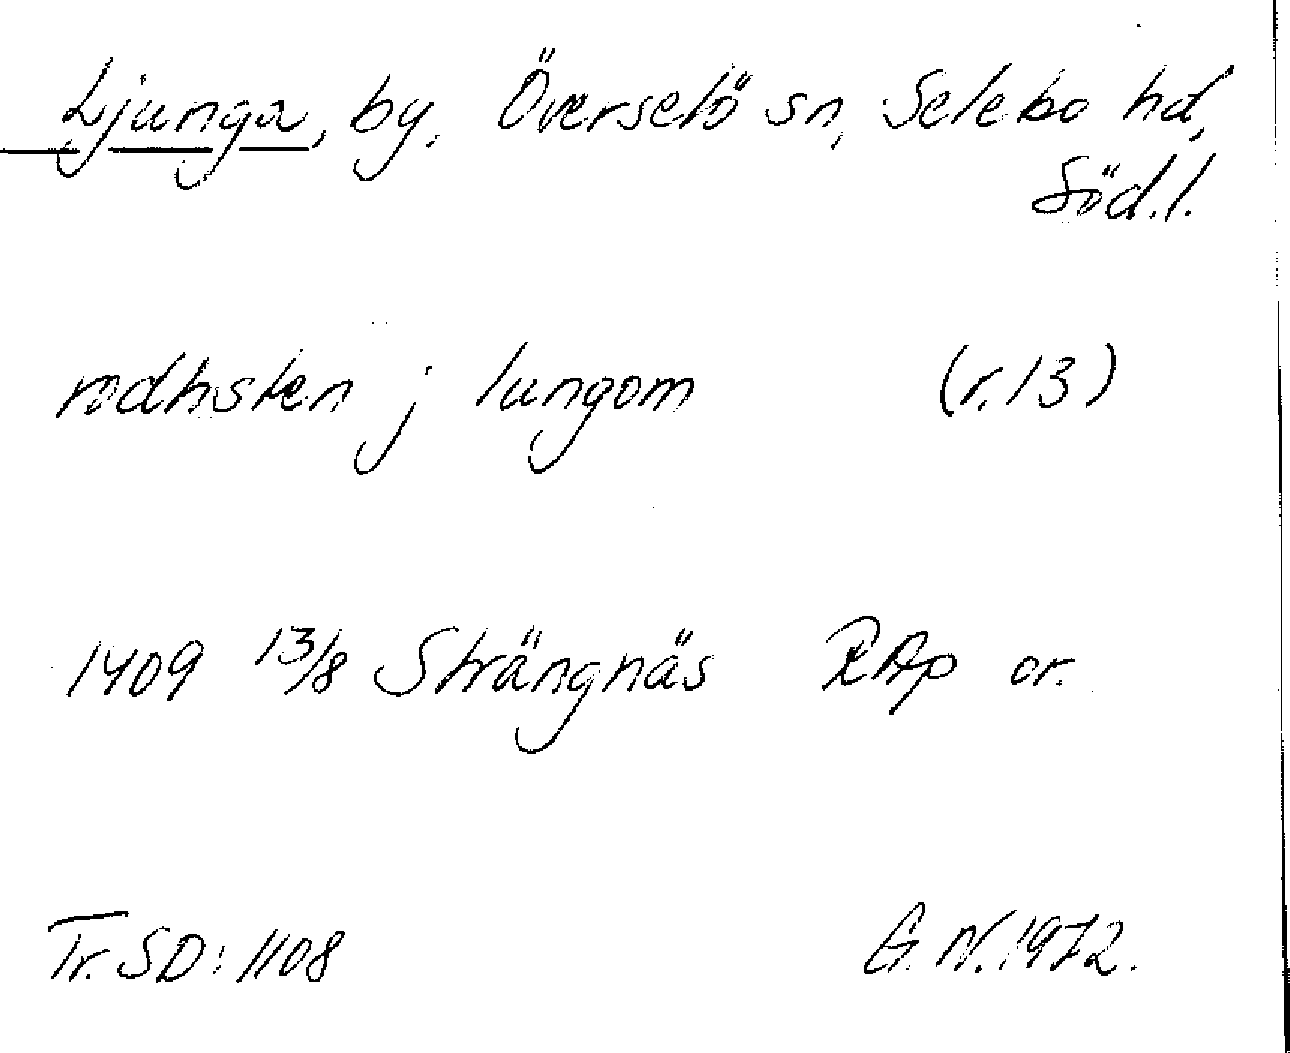 Ljunga, by, Överselö sn, Selebo hd,
Söd.l.
rødhsten j lungom (r. 13)
1409 13/8 Strängnäs RAp or.
Tr. SD: 1108 G.N. 1972.